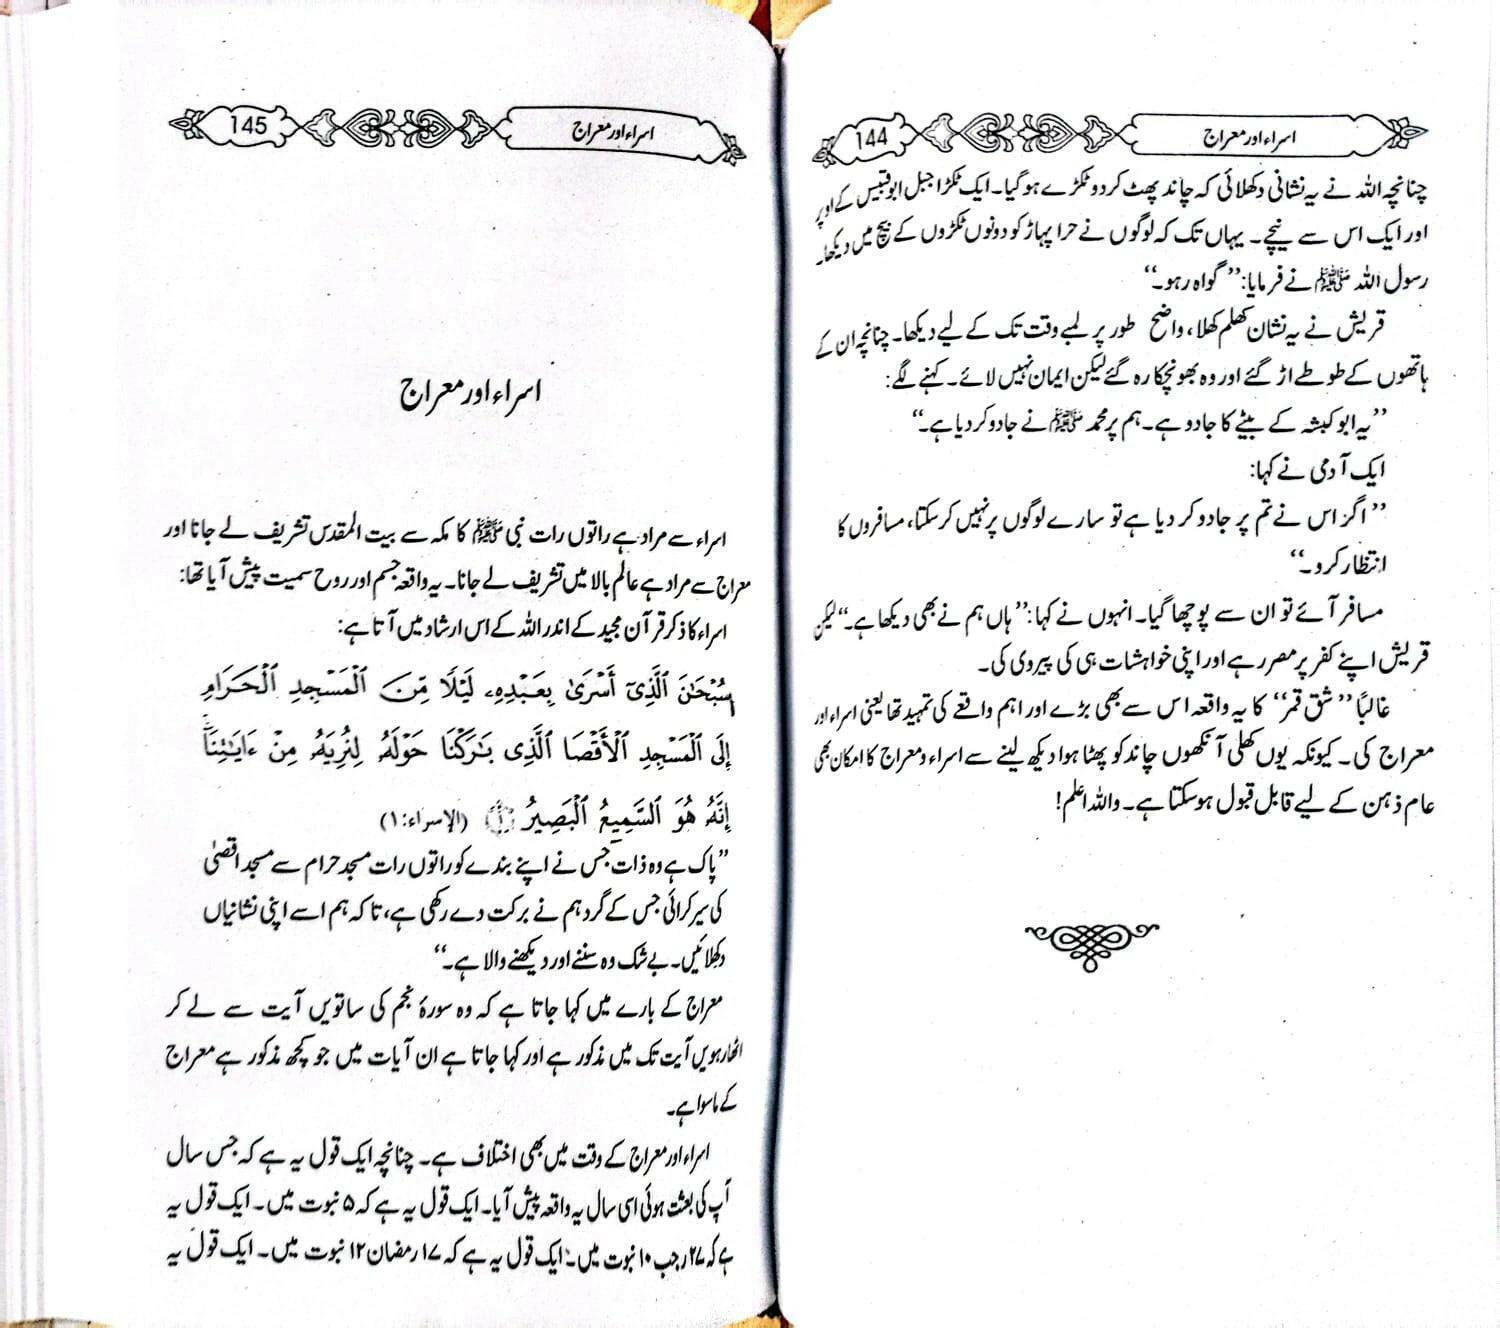 144
اسراء اور معراج
چنانچہ اللہ نے یہ نشانی دکھلائی کہ چاند پھٹ کر دو ٹکڑے ہو گیا۔ ایک ٹکڑا جبل ابو قبیس کے اوپر
اور ایک اس سے نیچے۔ یہاں تک کہ لوگوں نے حرا پہاڑ کو دونوں ٹکڑوں کے بیچ میں دیکھا۔
رسول اللہ ﷺ نے فرمایا: ’’گواہ رہو۔‘‘
قریش نے یہ نشان کھلم کھلا، واضح طور پر لمبے وقت تک کے لیے دیکھا۔ چنانچہ ان کے
ہاتھوں کے طوطے اڑ گئے اور وہ بھونچکا رہ گئے لیکن ایمان نہیں لائے۔ کہنے لگے:
’’یہ ابو کبشہ کے بیٹے کا جادو ہے۔ ہم پر محمد ﷺ نے جادو کر دیا ہے۔‘‘
ایک آدمی نے کہا:
’’اگر اس نے تم پر جادو کر دیا ہے تو سارے لوگوں پر نہیں کر سکتا، مسافروں کا
انتظار کرو۔‘‘
مسافر آئے تو ان سے پوچھا گیا۔ انہوں نے کہا: ’’ہاں ہم نے بھی دیکھا ہے۔‘‘ لیکن
قریش اپنے کفر پر مصر رہے اور اپنی خواہشات ہی کی پیروی کی۔
غالباً ’’شق قمر‘‘ کا یہ واقعہ اس سے بھی بڑے اور اہم واقعے کی تمہید تھا یعنی اسراء اور
معراج کی۔ کیونکہ یوں کھلی آنکھوں چاند کو پھٹا ہوا دیکھ لینے سے اسراء و معراج کا امکان بھی
عام ذہن کے لیے قابل قبول ہو سکتا ہے۔ واللہ اعلم!
145
اسراء اور معراج
اسراء اور معراج
اسراء سے مراد ہے راتوں رات نبی ﷺ کا مکہ سے بیت المقدس تشریف لے جانا اور
معراج سے مراد ہے عالم بالا میں تشریف لے جانا۔ یہ واقعہ جسم اور روح سمیت پیش آیا تھا:
اسراء کا ذکر قرآن مجید کے اندر اللہ کے اس ارشاد میں آتا ہے:
سُبْحَٰنَ ٱلَّذِىٓ أَسْرَىٰ بِعَبْدِهِۦ لَيْلًا مِّنَ ٱلْمَسْجِدِ ٱلْحَرَامِ
إِلَى ٱلْمَسْجِدِ ٱلْأَقْصَا ٱلَّذِى بَٰرَكْنَا حَوْلَهُۥ لِنُرِيَهُۥ مِنْ ءَايَٰتِنَآ
إِنَّهُۥ هُوَ ٱلسَّمِيعُ ٱلْبَصِيرُ ﴿١﴾ (الإسراء: ١)
’’پاک ہے وہ ذات جس نے اپنے بندے کو راتوں رات مسجد حرام سے مسجد اقصیٰ
کی سیر کرائی جس کے گرد ہم نے برکت دے رکھی ہے، تا کہ ہم اسے اپنی نشانیاں
دکھلائیں۔ بے شک وہ سننے اور دیکھنے والا ہے۔‘‘
معراج کے بارے میں کہا جاتا ہے کہ وہ سورۂ نجم کی ساتویں آیت سے لے کر
اٹھارہویں آیت تک میں مذکور ہے اور کہا جاتا ہے ان آیات میں جو کچھ مذکور ہے معراج
کے ماسوا ہے۔
اسراء اور معراج کے وقت میں بھی اختلاف ہے۔ چنانچہ ایک قول یہ ہے کہ جس سال
آپ کی بعثت ہوئی اسی سال یہ واقعہ پیش آیا۔ ایک قول یہ ہے کہ ۵ نبوت میں۔ ایک قول یہ
ہے کہ ۲۷ رجب ۱۰ نبوت میں۔ ایک قول یہ ہے کہ ۱۷ رمضان ۱۲ نبوت میں۔ ایک قول یہ